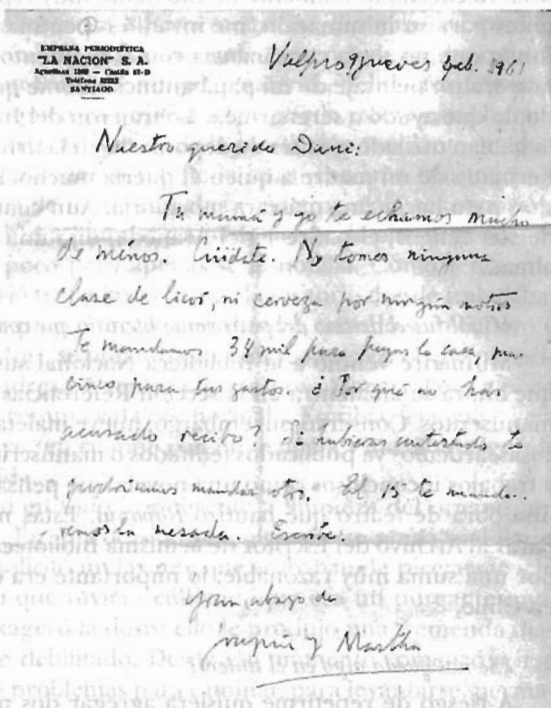 EMPRESA PERIODISTICA
"LA NACION" S. A.
Agustinas 1269 — Casilla 81-D
Teléfono 82222
SANTIAGO
Valpso jueves feb. 1961
Nuestro querido Dani:
Tu mamá y yo te echamos mucho
de menos. Cuídate. No tomes ninguna
clase de licor, ni cerveza por ningún motivo
Te mandamos 34 mil para pagar la casa, mas
cinco para tus gastos ¿Por qué no has
recibo? si hubieras te
gustaríamos mandar otro. El 15, te manda-
remos la mesada. Escribe.
gran abrazo de
y Martha